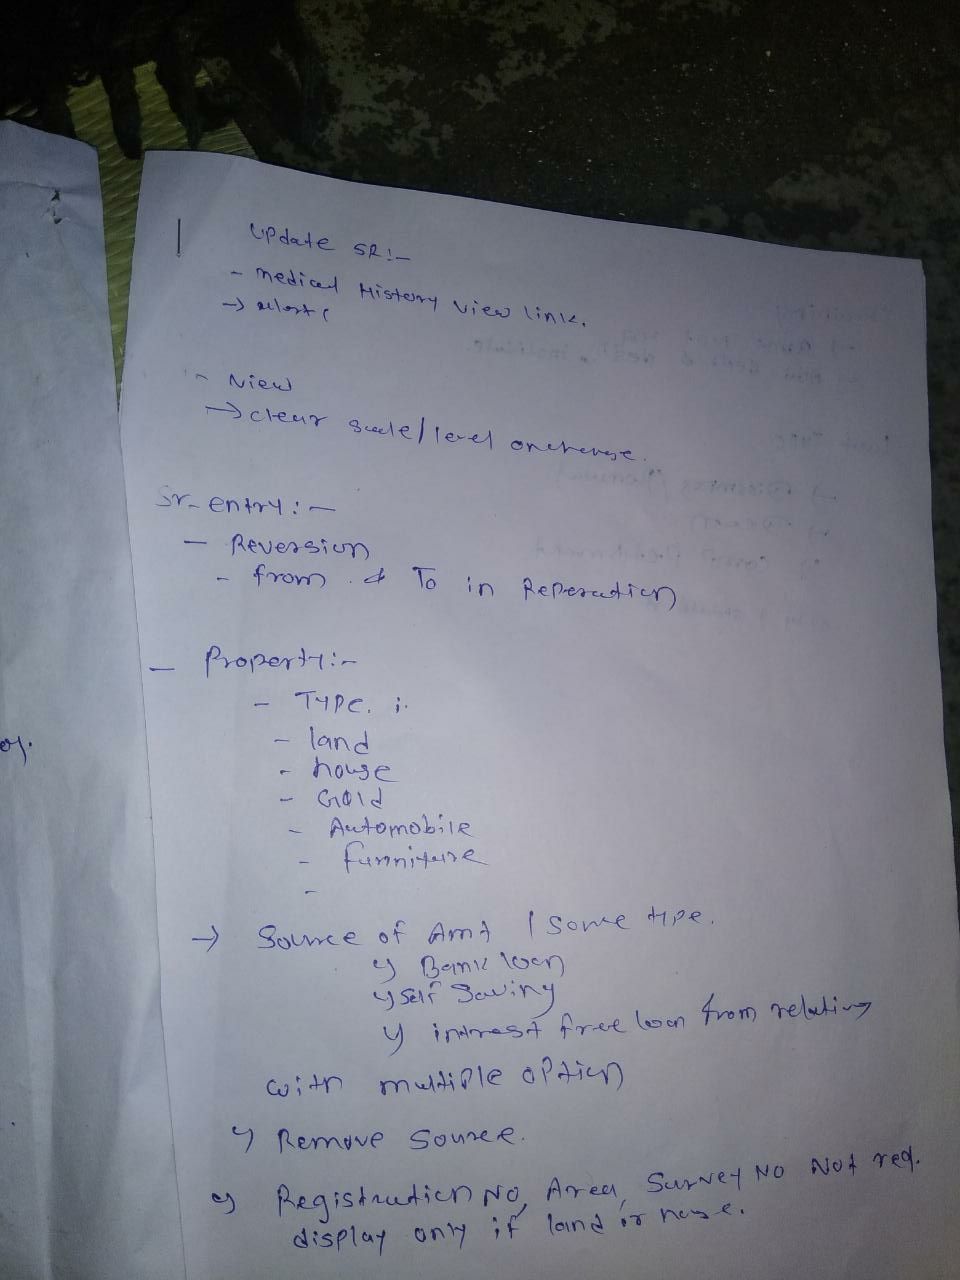 Update SR:-
- medical History view link.
- View
→ clear scale/level onchange.
Sr-entry:-
- Reversion
- from & To in Reperation
- Property:-
- Type :-
- land
- house
- Gold
- Automobile
- furniture
-
→ Source of Amt / Some type.
→ Bank loan
→ self Saving
→ intrest free loan from relative
with multiple option
→ Remove Source.
→ Registration No, Area, Survey No Not req.
display only if land or house.